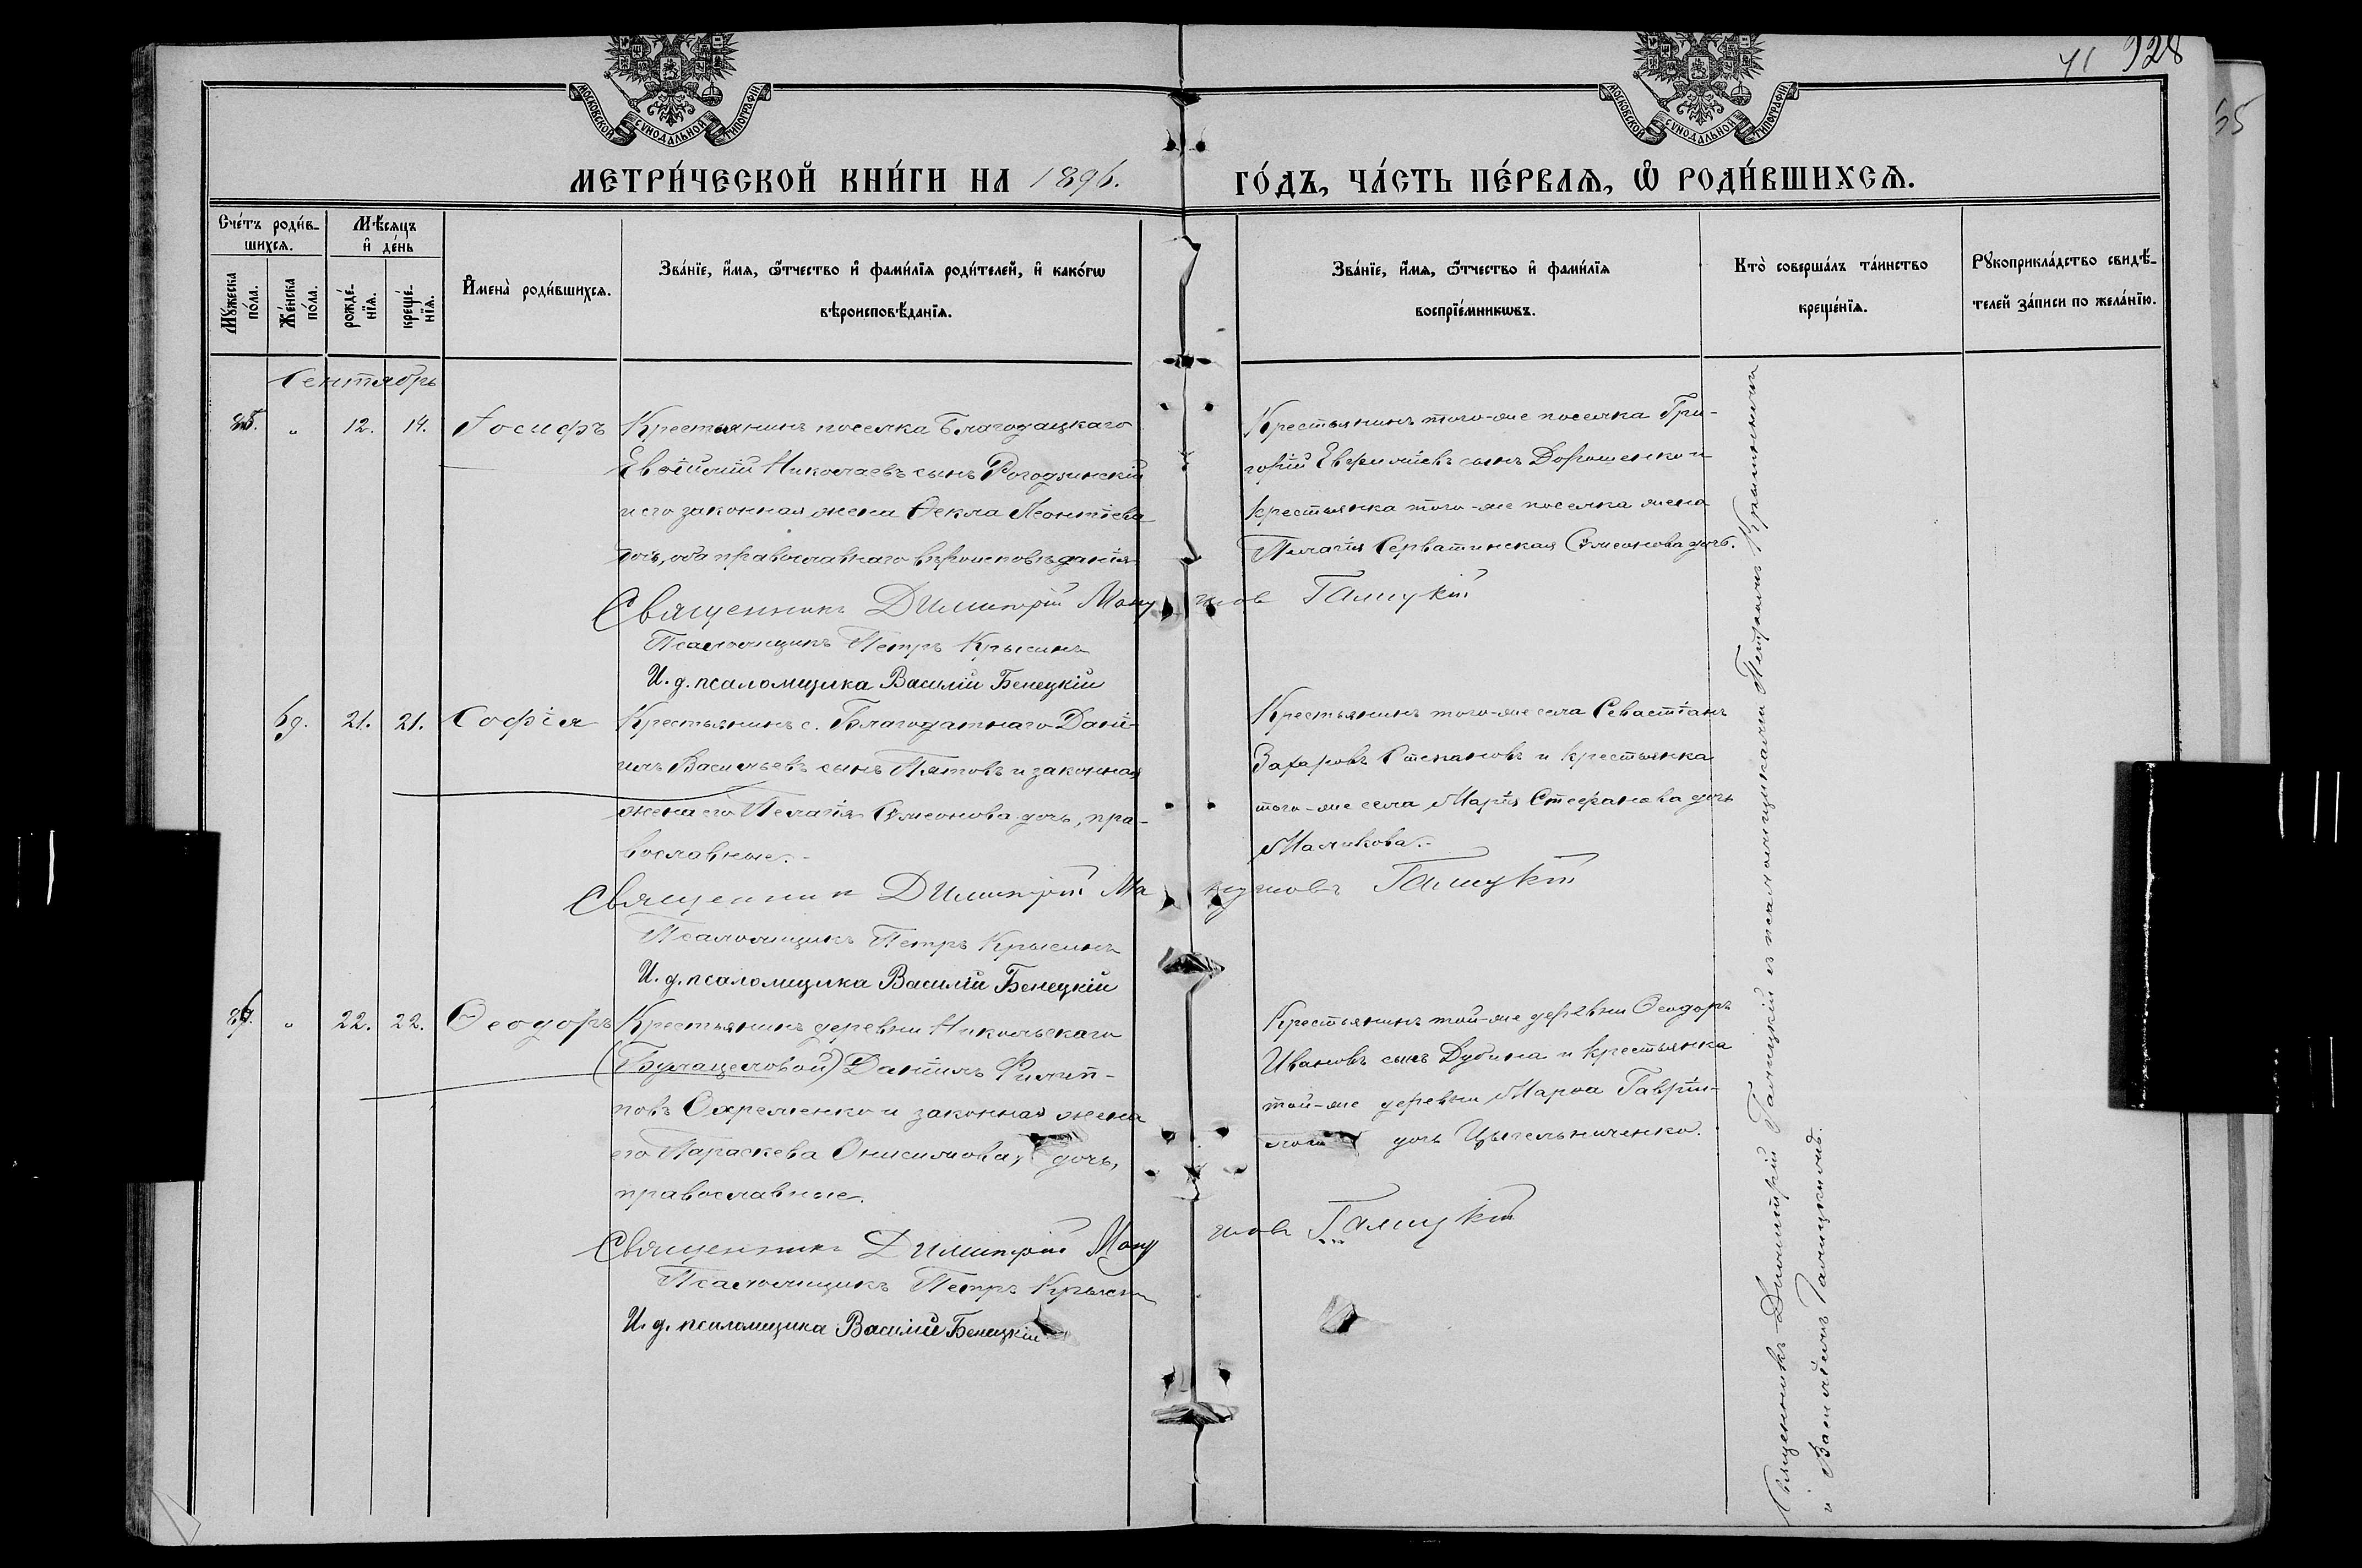 41 928
55
МОСКОВСКОЙ СУНОДАЛЬНОЙ ТИПОГРАФІИ
МОСКОВСКОЙ СУНОДАЛЬНОЙ ТИПОГРАФІИ
МЕТРИ́ЧЕСКОЙ КНИ́ГИ НА 1896.
ГО́ДЪ, ЧА́СТЬ ПЕ́РВАЯ, Ѡ РОДИ́ВШИХСЯ.
Сче́тъ роди́в-
шихся.
Мѣ́сяцъ
и де́нь
Мꙋ́жеска
по́ла.
Же́нска
по́ла.
рожде́-
нїя.
креще́-
нїя.
И҆мена̀ роди́вшихся.
Зва́нїе, и҆́мя, ѻ҆́тчество и҆ фами́лїя роди́телей, и҆ како́гѡ
вѣроисповѣ́данїя.
Зва́нїе, и҆́мя, ѻ҆́тчество и҆ фами́лїя
воспрїе́мникѡвъ.
Кто̀ соверша́лъ та́инство
креще́нїя.
Рꙋкоприкла́дство свидѣ́-
телей за́писи по жела́нїю.
Сентябрь
85. " 12. 14. Іосифъ
Крестьянинъ поселка Благодацкаго
Евѳимій Николаевъ сынъ Рогодзинскій
и его законная жена Ѳекла Леонтіева
дочь, оба православнаго вѣроисповѣданія
Крестьянинъ того-же поселка Гри-
горій Евфиміевъ сынъ Дорошенко и
крестьянка того-же поселка жена
Пелагія Серватинская Сѵмеонова дочь.
Священникъ Димитрій Ману
иловъ Галицкій
Псаломщикъ Петръ Крысинъ
И. д. псаломщика Василій Бенецкій
69. 21. 21. Софія
Крестьянинъ с. Благодатнаго Дані-
илъ Васильевъ сынъ Пятовъ и законная
жена его Пелагія Сѵмеонова дочь, пра-
вославные.-
Крестьянинъ того-же села Севастіанъ
Захаровъ Степановъ и крестьянка
того-же села Марія Стефанова дочь
Маликова.-
Священникъ Димитрій Ма
нуиловъ Галицкій
Псаломщикъ Петръ Крысинъ
И. д. псаломщика Василій Бенецкій
86. " 22. 22. Ѳеодоръ
Крестьянинъ деревни Никольскаго
(Булацеловой) Даніилъ Филип-
повъ Охременко и законная жена
его Параскева Онисимова, дочь,
православные.
Крестьянинъ той-же деревни Ѳеодоръ
Ивановъ сынъ Дубина и крестьянка
той-же деревни Марѳа Гаврии-
лова дочь Цыгельниченко.
Священникъ Димитрій Ману
иловъ Галицкій
Псаломщикъ Петръ Крысинъ
И. д. псаломщика Василій Бенецкій
Священникъ Димитрій Галицкій съ псаломщиками Петромъ Крысинымъ
и Василіемъ